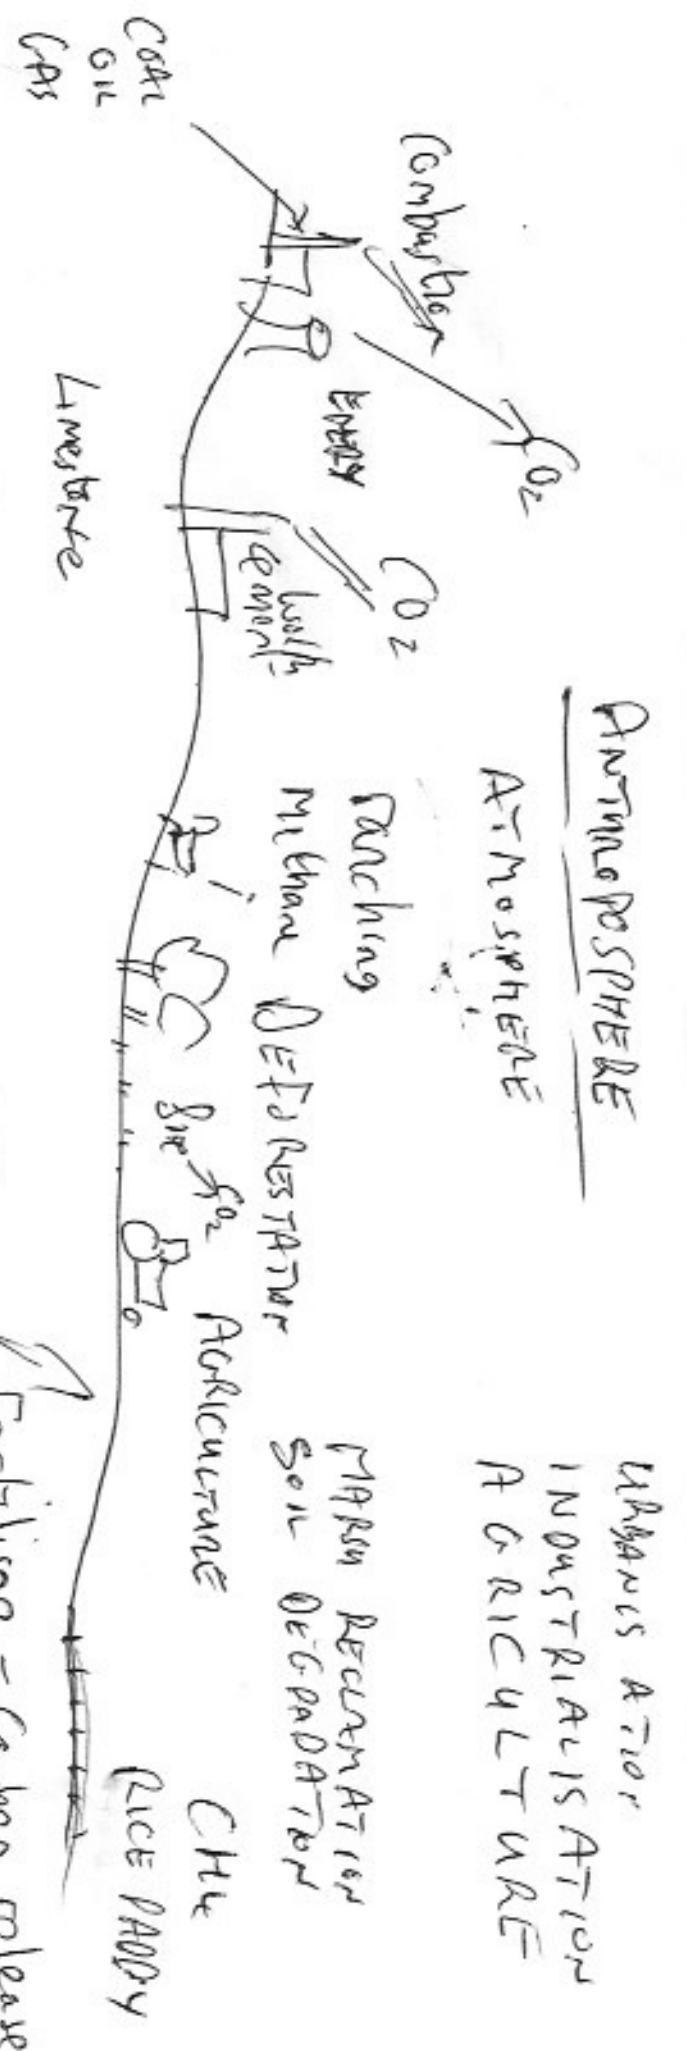 ANTHROPOSPHERE
ATMOSPHERE
URBANISATION
INDUSTRIALISATION
AGRICULTURE
COAL
OIL
GAS
Combustion
CO2
ENERGY
CO2
Cement
works
Limestone
ranching
Methane
DEFORESTATION
fire
CO2
AGRICULTURE
MARSH RECLAMATION
SOIL DEGRADATION
CH4
RICE PADDY
Fertiliser = Carbon release